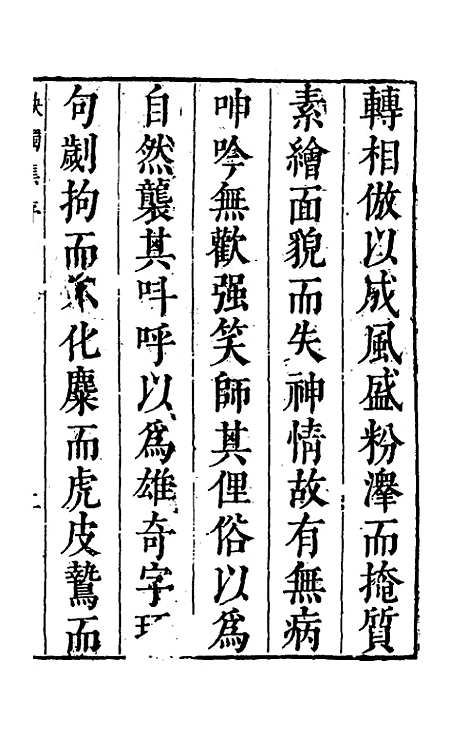 轉相倣以成風盛粉澤而掩質
素繪面貌而失神情故有無病
呻吟無歡强笑師其俚俗以爲
自然襲其呌呼以爲雄奇字
句劌拘而不化麋而虎皮鷙而